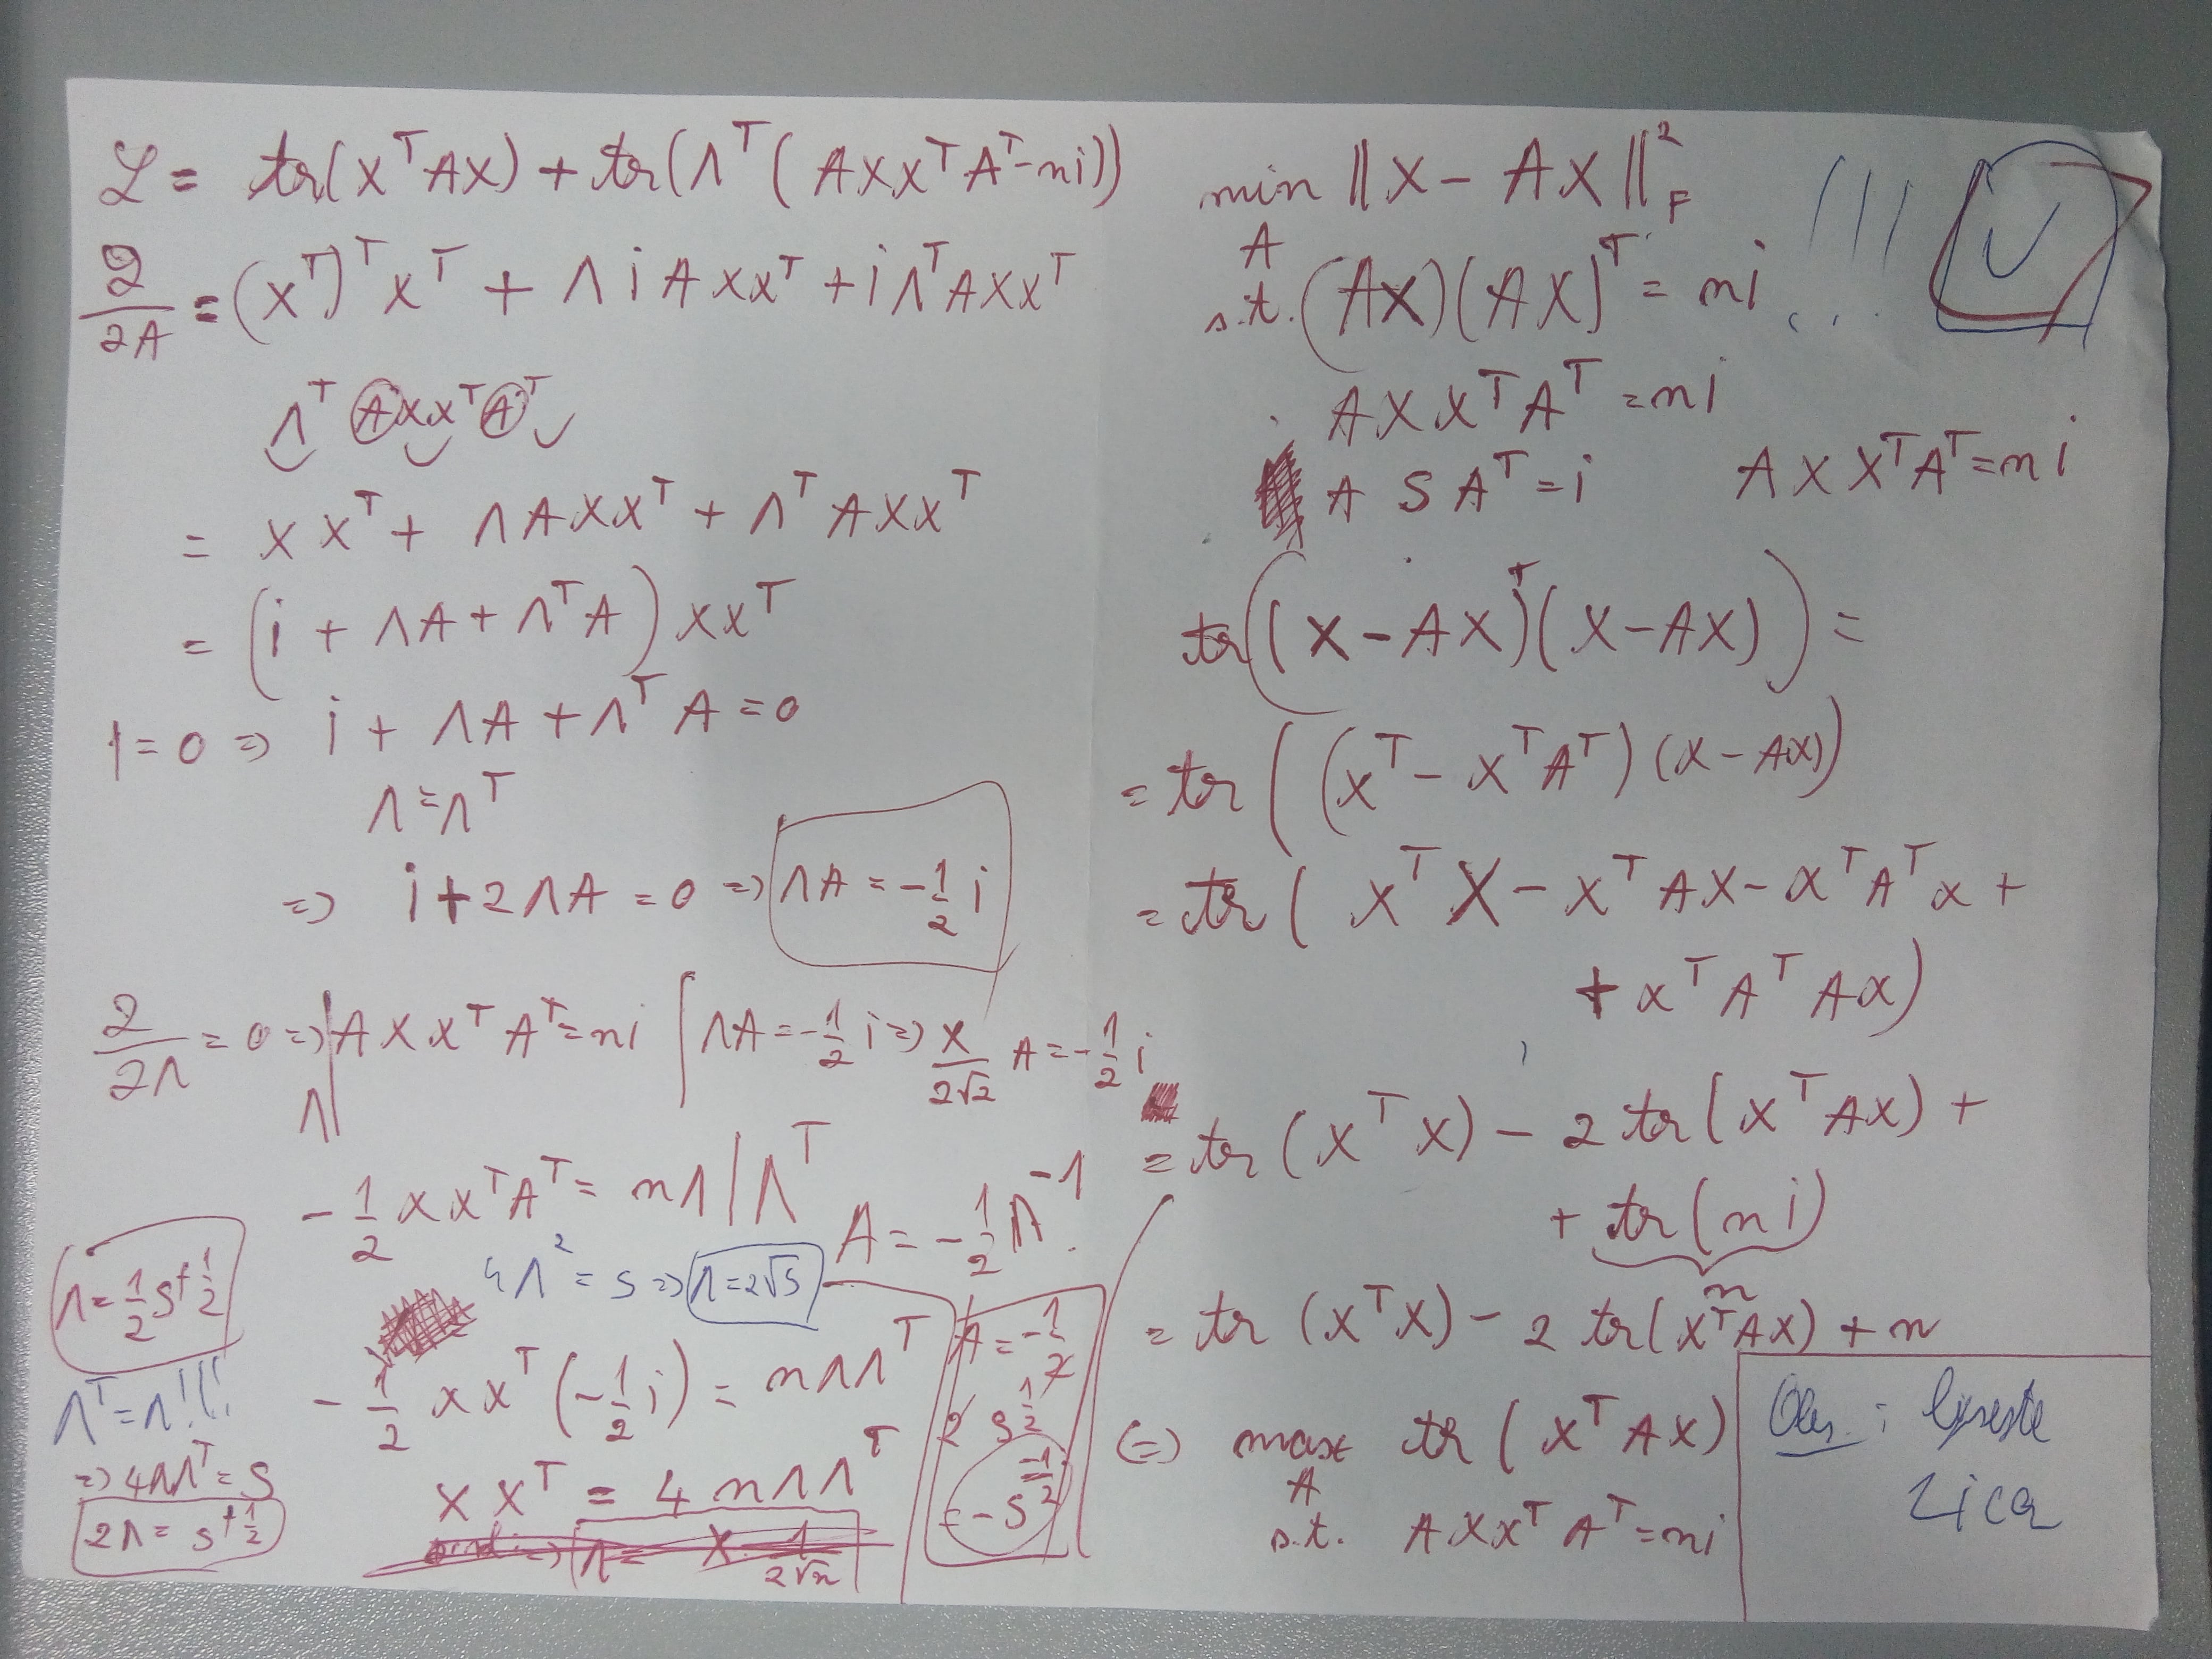 ℒ = tr(XᵀAX) + tr(Λᵀ(AXXᵀAᵀ-ni))
∂/∂A = (Xᵀ)ᵀXᵀ + ΛiAXXᵀ + iΛᵀAXXᵀ
ΛᵀAXXᵀAᵀ
= XXᵀ + ΛAXXᵀ + ΛᵀAXXᵀ
= (i + ΛA + ΛᵀA) XXᵀ
1=0 => i + ΛA + ΛᵀA = 0
Λ = Λᵀ
=> i + 2ΛA = 0 => ΛA = -1/2 i
∂/∂Λ = 0 => AXXᵀAᵀ = ni | ΛA = -1/2 i => X/(2√2) A = -1/2 i
Λ|
-1/2 XXᵀAᵀ = nΛ | Λᵀ
A = -1/2 Λ⁻¹
4Λ² = S => Λ = 2√S
Λ = 1/2 S^(+1/2)
-1/2 XXᵀ(-1/2 i) = nΛΛᵀ
A = -1/2
2 S^(1/2)
= -S^(-1/2)
Λᵀ = Λ!!!
=> 4ΛΛᵀ = S
XXᵀ = 4nΛΛᵀ
2Λ = S^(+1/2)
=> Λ = X 1/(2√n)
min ‖X - AX‖²F
A
s.t. (AX)(AX)ᵀ = ni !!!
AXXᵀAᵀ = ni
A S Aᵀ = i AXXᵀAᵀ = ni
tr((X - AX)ᵀ(X - AX)) =
= tr((Xᵀ - XᵀAᵀ)(X - AX))
= tr(XᵀX - XᵀAX - XᵀAᵀX +
+ XᵀAᵀAX)
= tr(XᵀX) - 2 tr(XᵀAX) +
+ tr(ni)
n
= tr(XᵀX) - 2 tr(XᵀAX) + n
(=) max tr(XᵀAX)
A
s.t. AXXᵀAᵀ = ni
Obs:
Zica